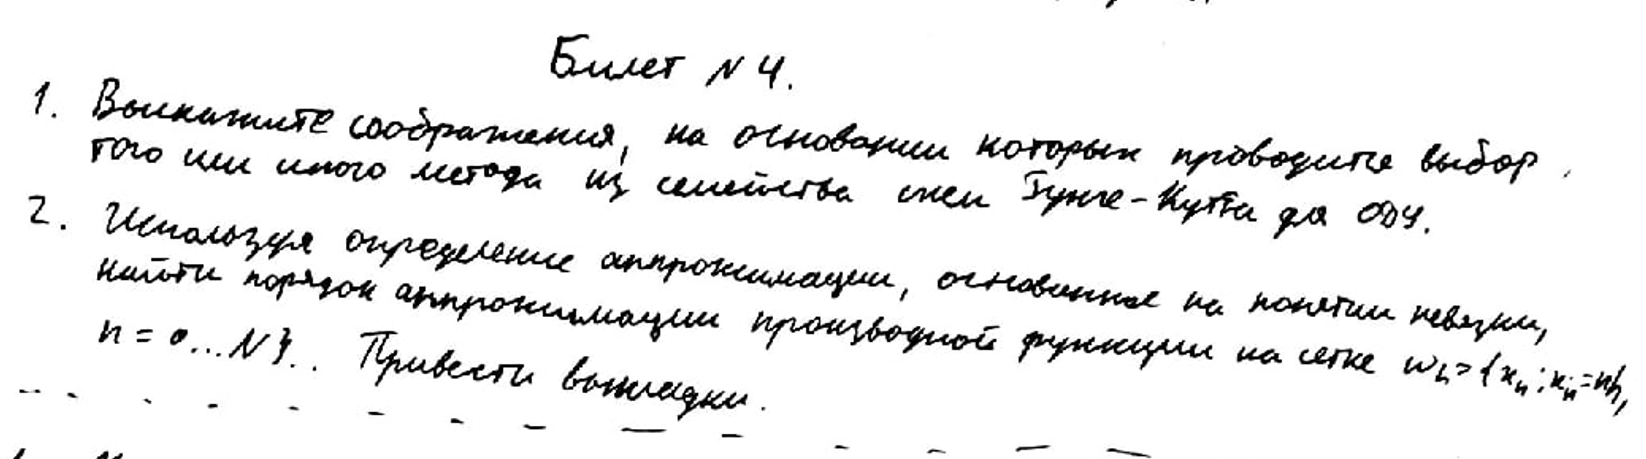 Билет № 4.
1. Выскажите соображения, на основании которых проводится выбор
того или иного метода из семейства схем Рунге-Кутта для ОДУ.
2. Используя определение аппроксимации, основанное на понятии невязки,
найти порядок аппроксимации производной функции на сетке ωh = {xn; xn = nh,
n = 0...N}.. Привести выкладки.